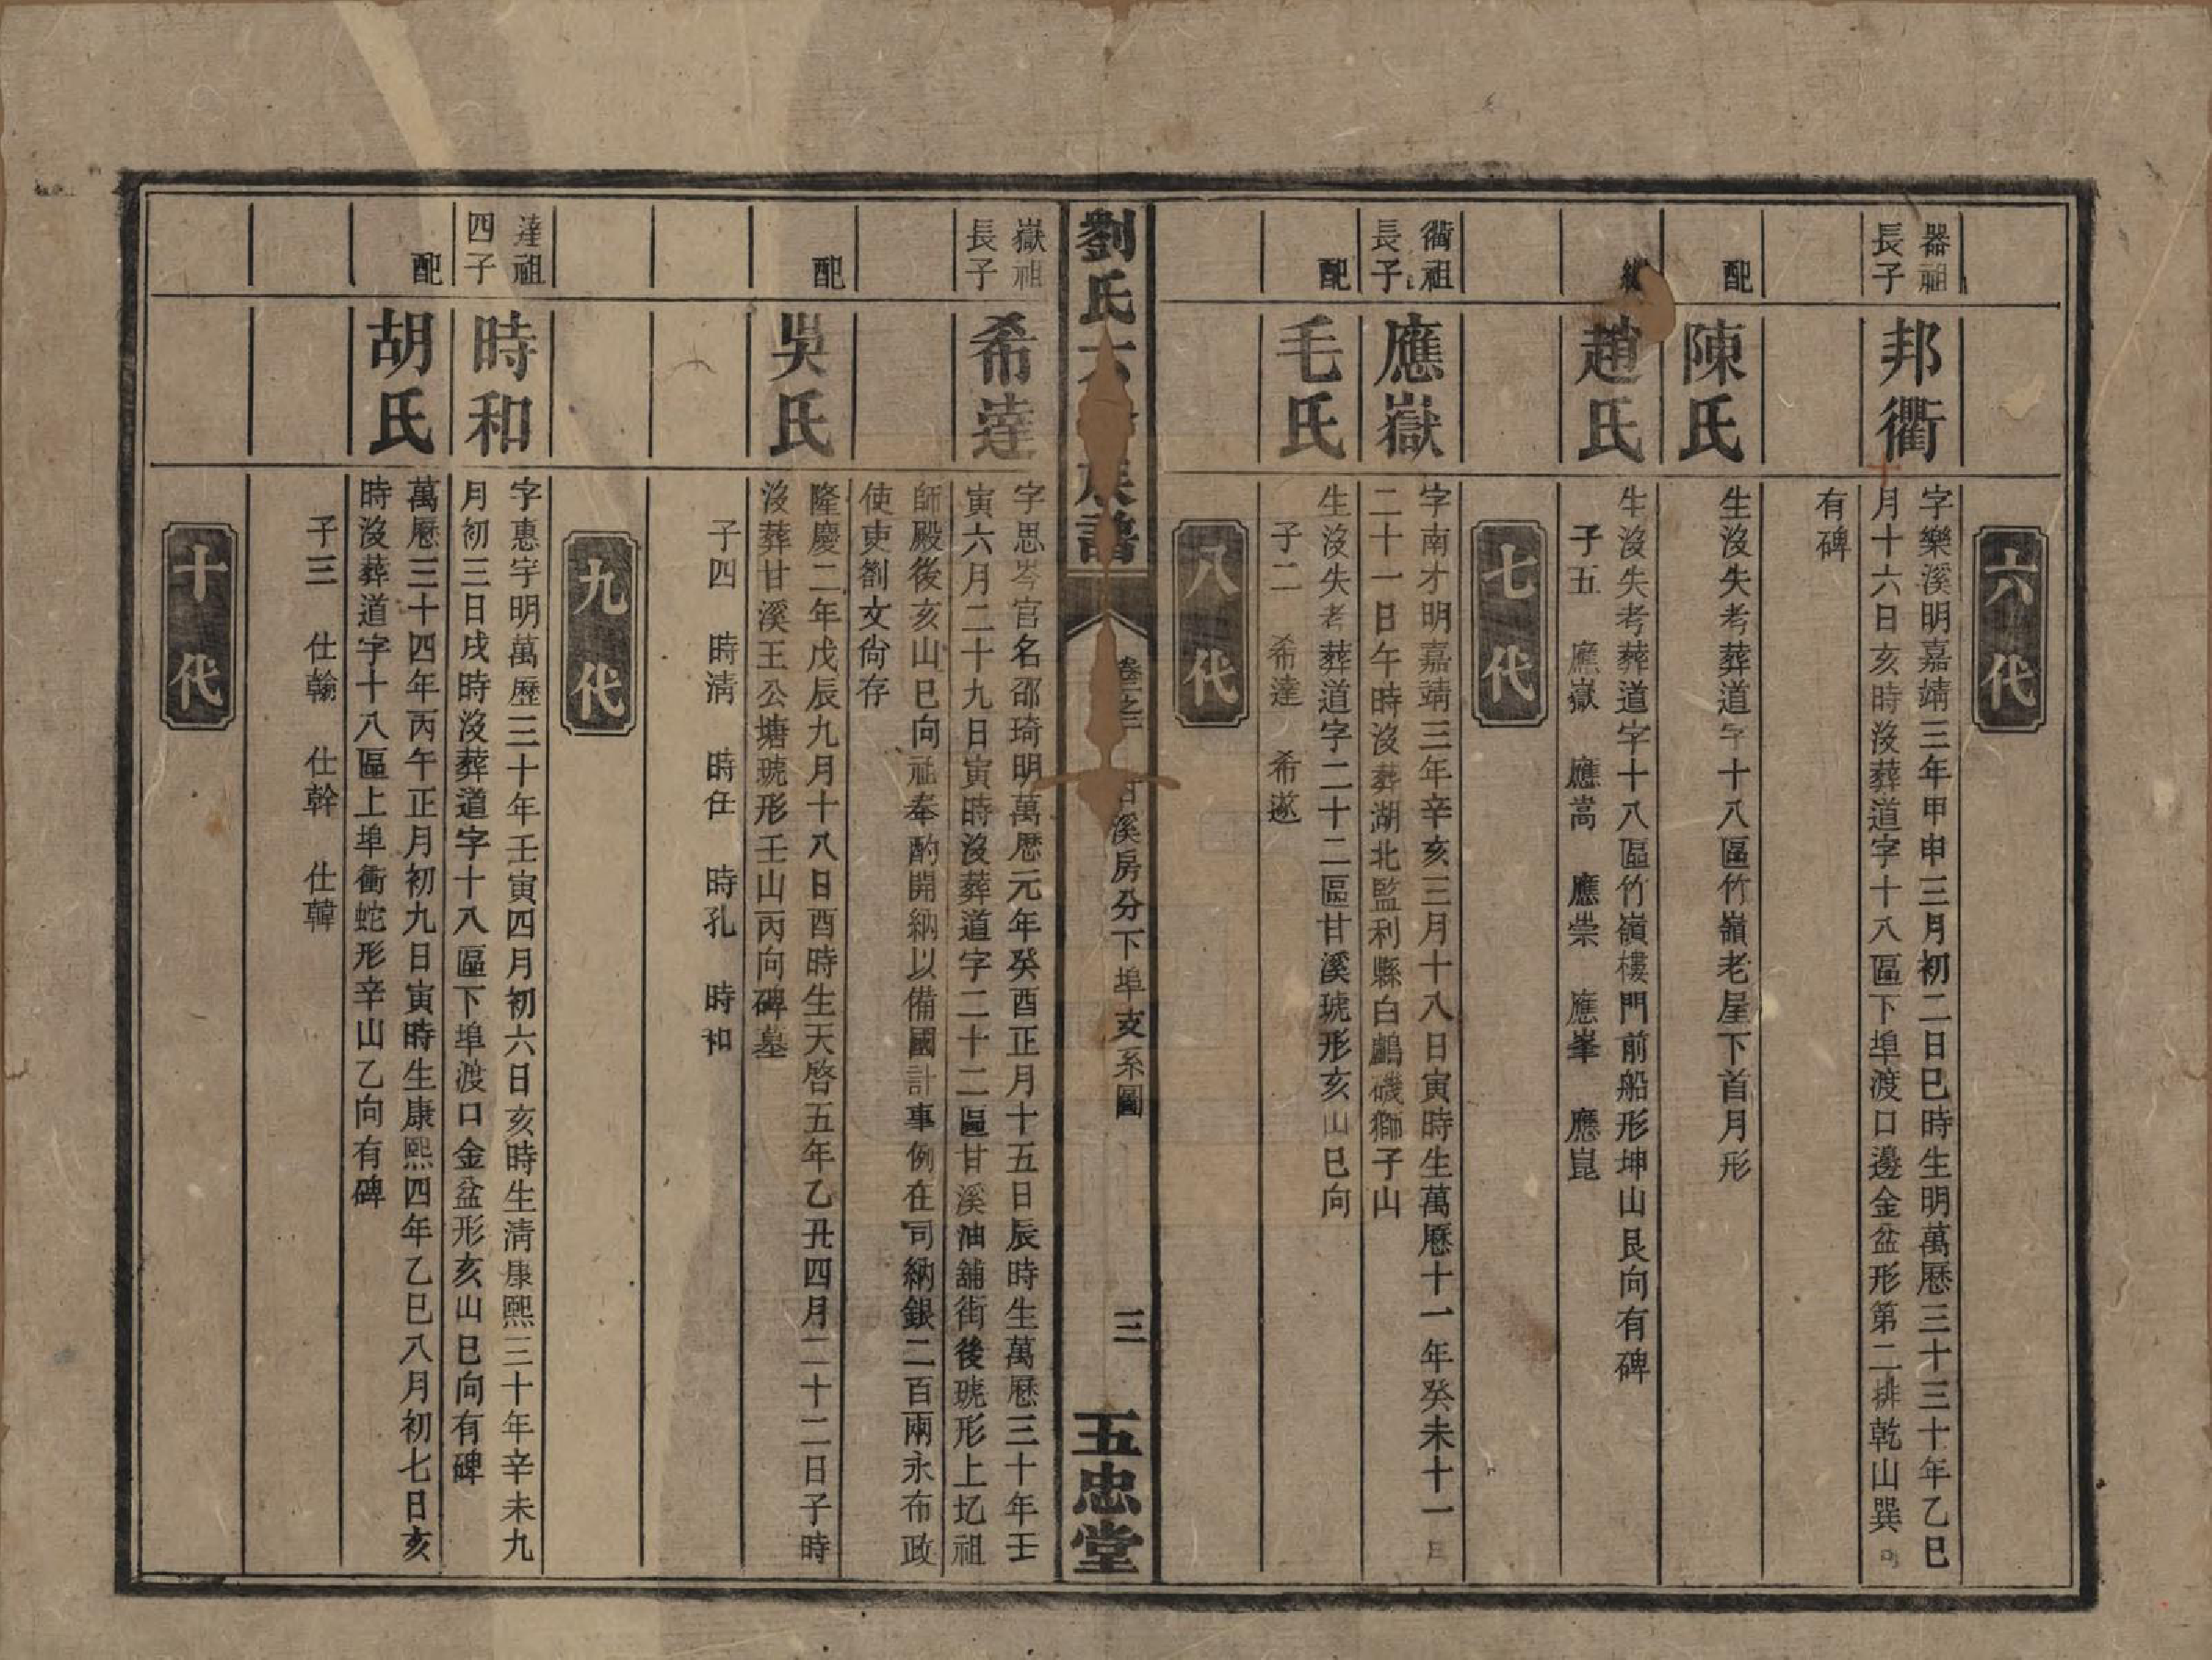 六代
器祖
長子
邦衢
字樂溪明嘉靖三年甲申三月初二日巳時生明萬曆三十三十年乙巳
月十六日亥時沒葬道字十八區下埠渡口邊金盆形第二排乾山巽向
有碑
配
陳氏
生沒失考葬道字十八區竹嶺老屋下首月形
趙氏
生沒失考葬道字十八區竹嶺樓門前船形坤山艮向有碑
子五 應嶽 應嵩 應崇 應峯 應崑
七代
衢祖
長子
應嶽
字南才明嘉靖三年辛亥三月十八日寅時生萬曆十一年癸未十一月
二十一日午時沒葬湖北監利縣白鸕磯獅子山
配
毛氏
生沒失考葬道字二十二區甘溪琥形亥山巳向
子二 希達 希遂
八代
劉氏 族譜
卷 之二 甘溪房分下埠支系圖
三
五忠堂
嶽祖
長子
希達
字思岑官名邵琦明萬曆元年癸酉正月十五日辰時生萬曆三十年壬
寅六月二十九日寅時沒葬道字二十二區甘溪油舖街後琥形上圪祖
師殿後亥山巳向祗奉酌開納以備國計事例在司納銀二百兩永布政
使吏劄文尙存
配
吳氏
隆慶二年戊辰九月十八日酉時生天啓五年乙丑四月二十二日子時
沒葬甘溪王公塘琥形壬山丙向碑墓
子四 時清 時任 時孔 時和
九代
達祖
四子
時和
字惠宇明萬歷三十年壬寅四月初六日亥時生清康熙三十年辛未九
月初三日戌時沒葬道字十八區下埠渡口金盆形亥山巳向有碑
配
胡氏
萬曆三十四年丙午正月初九日寅時生康熙四年乙巳八月初七日亥
時沒葬道字十八區上埠衝蛇形辛山乙向有碑
子三 仕翰 仕幹 仕韓
十代